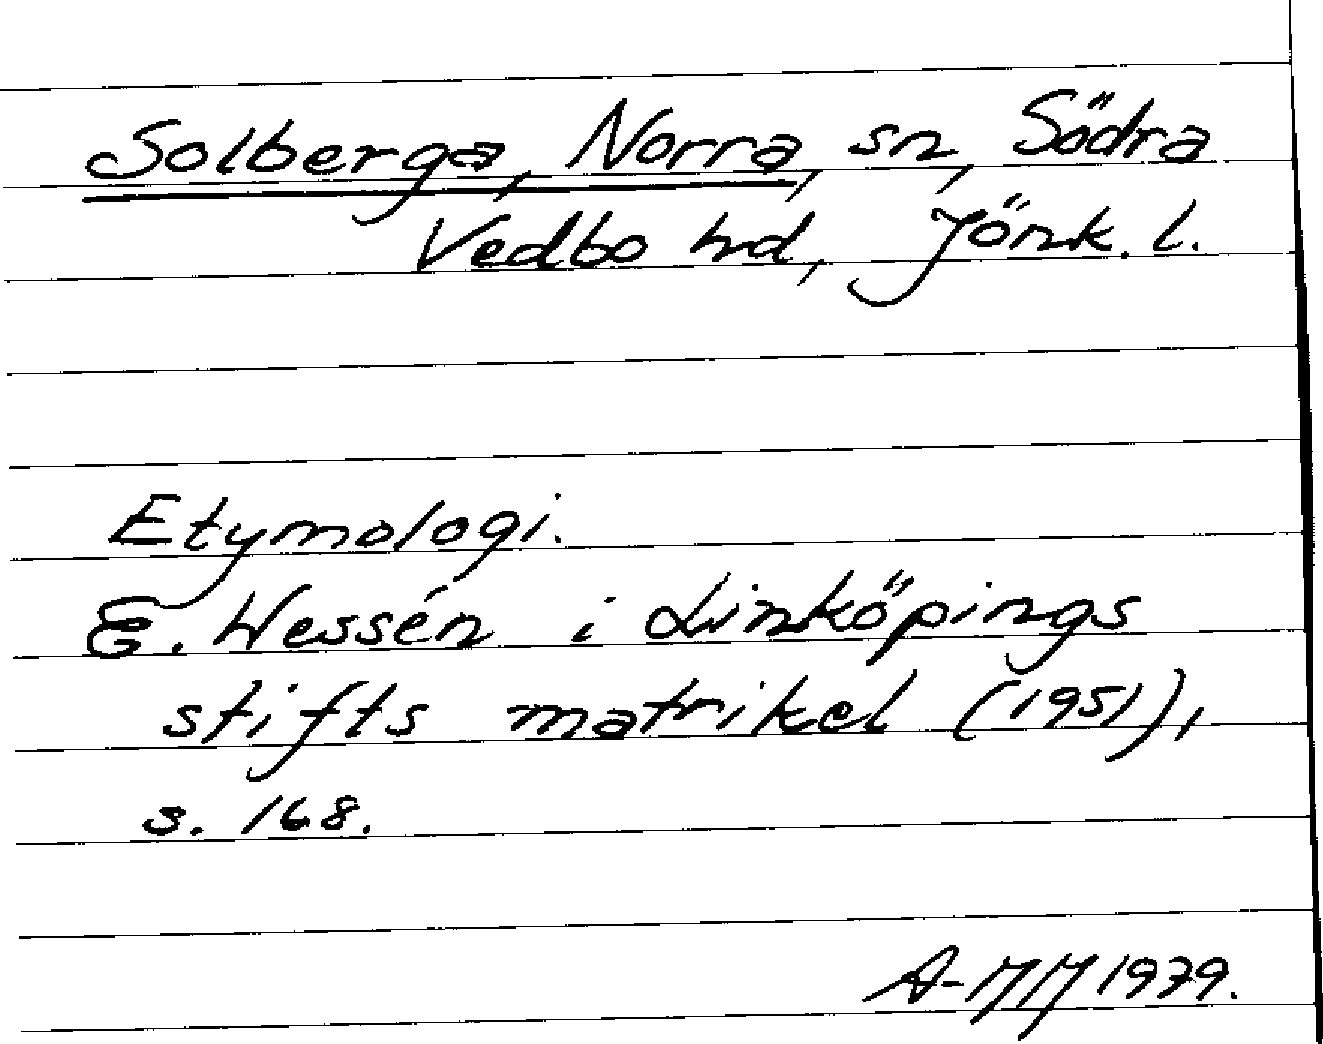 Solberga, Norra, sn, Södra
Vedbo hd, Jönk. l.
Etymologi.
E. Wessén i Linköpings
stifts matrikel (1951),
s. 168.
1979.